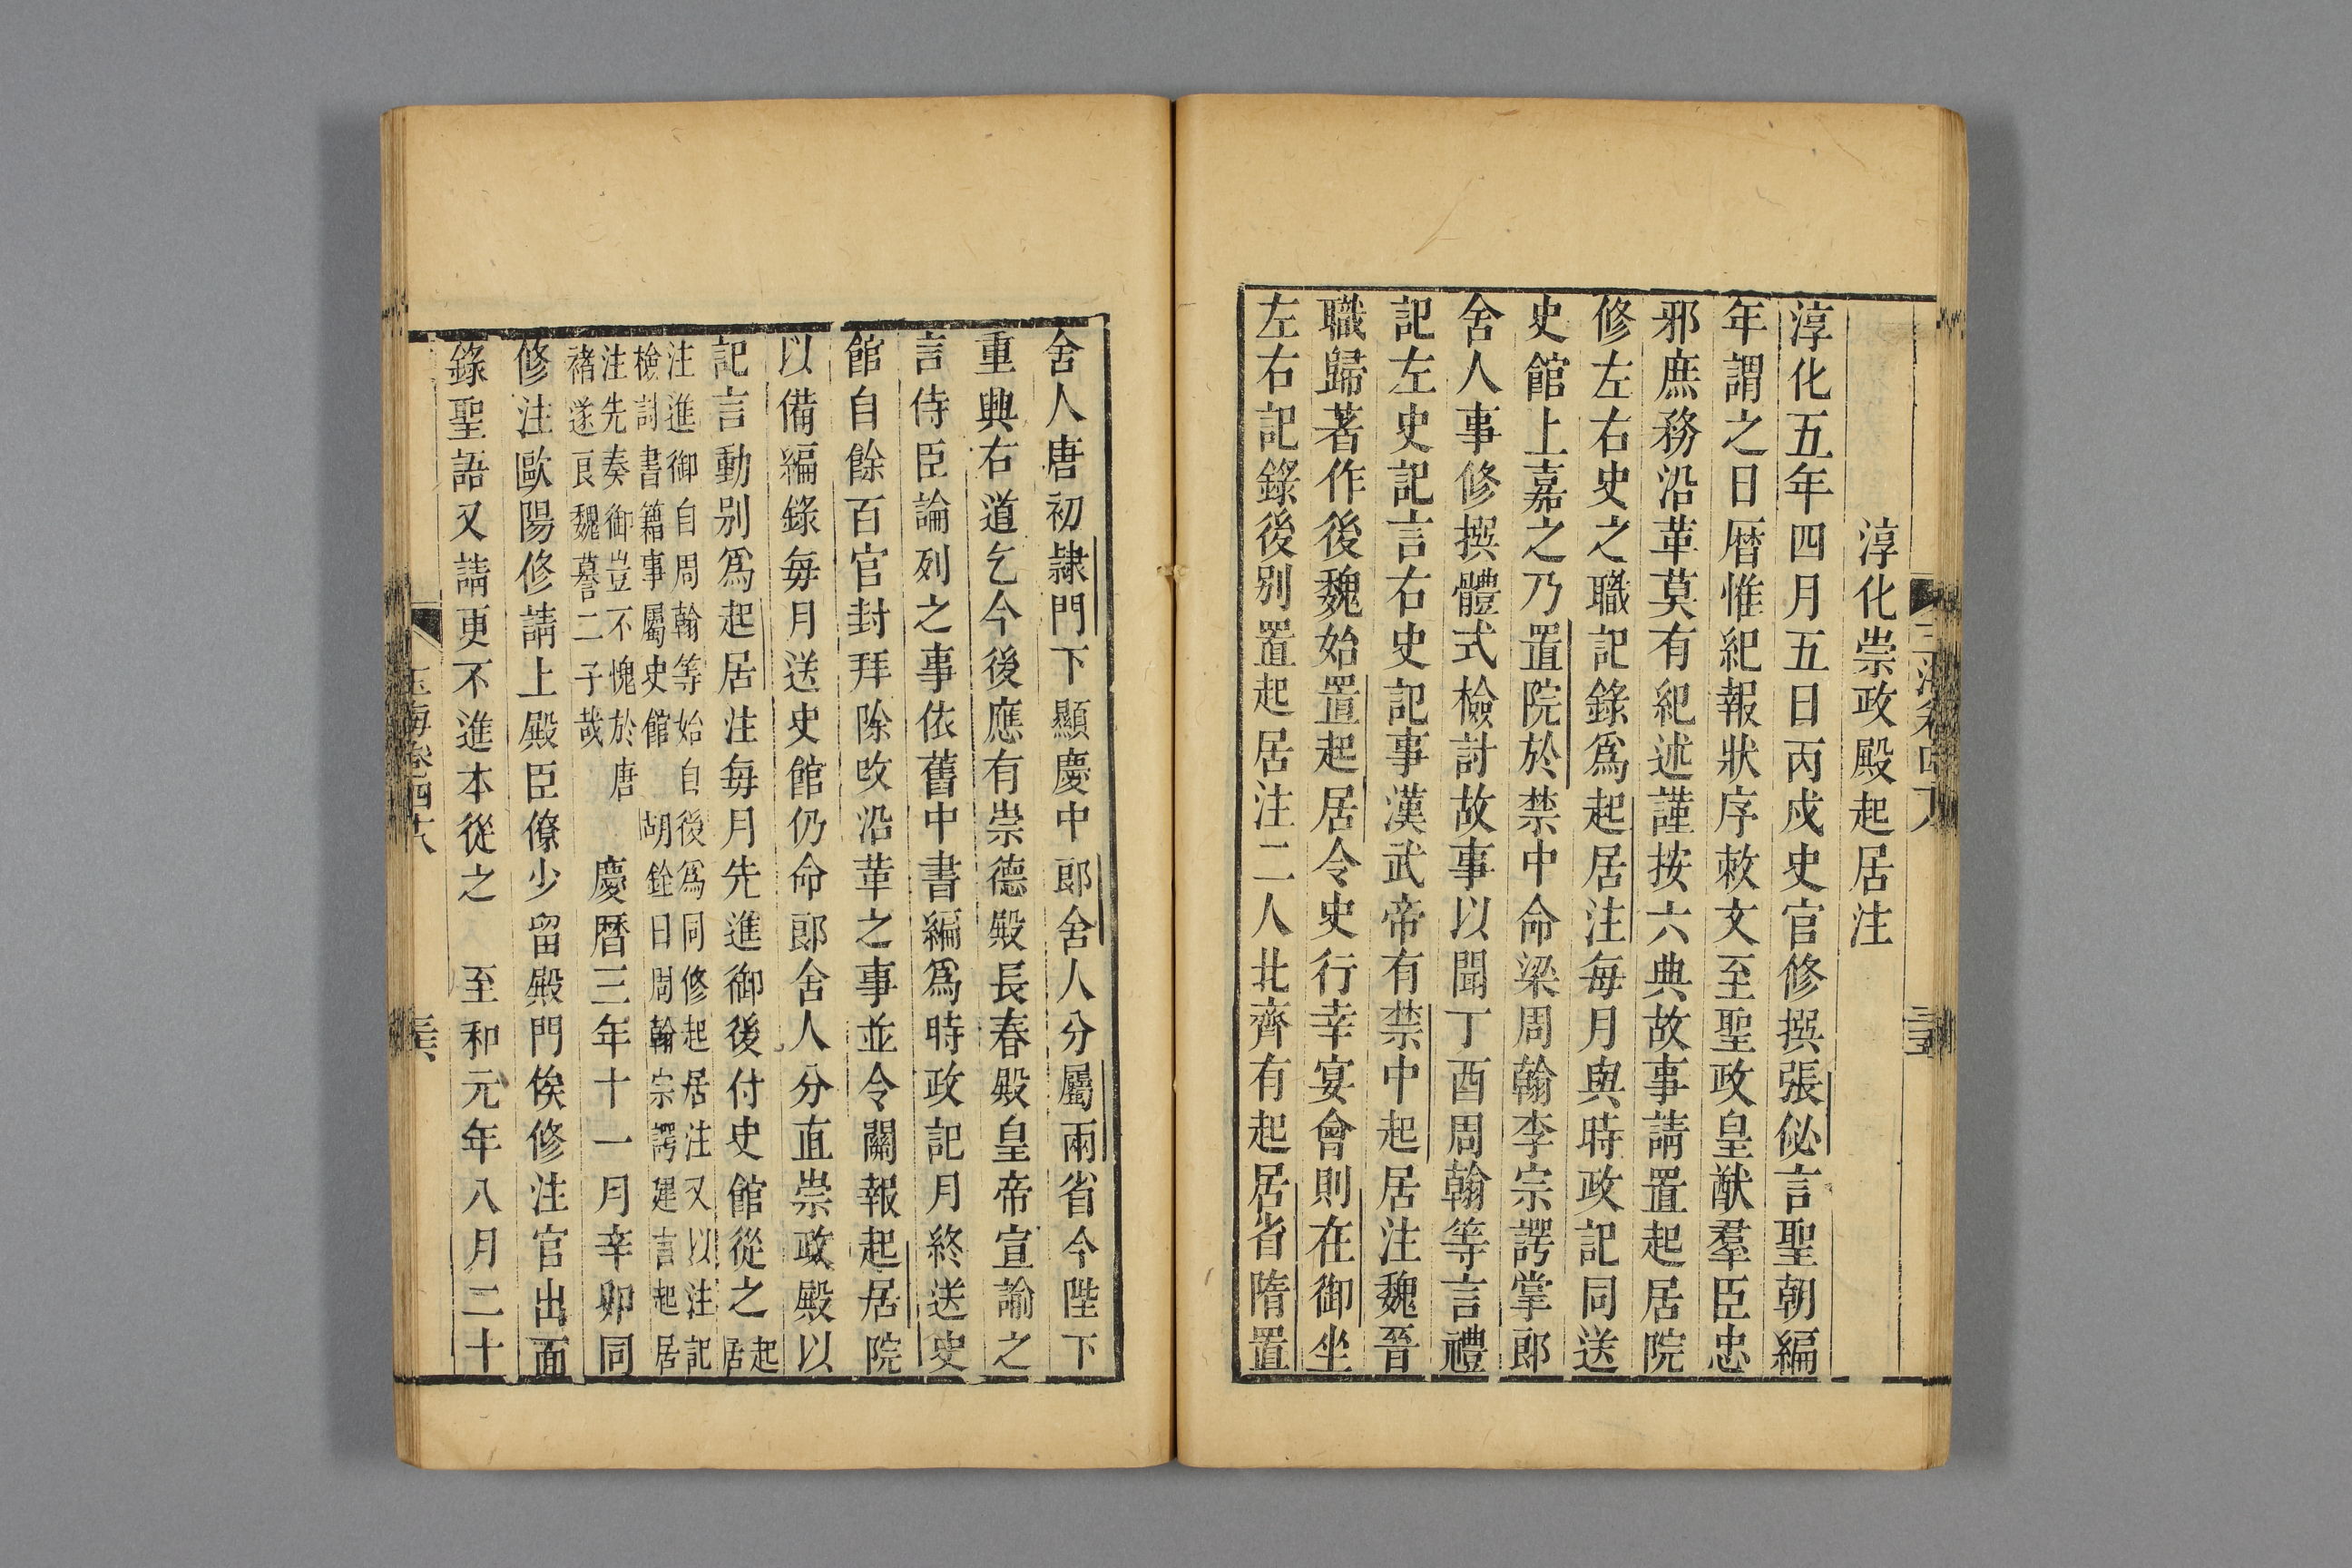 淳化崇政殿起居注
淳化五年四月五日丙戍史官修撰張佖言聖朝編
年謂之日曆惟紀報狀序敕文至聖政皇猷羣臣忠
邪庶務沿革莫有紀述謹按六典故事請置起居院
修左右史之職記錄爲起居注每月與時政記同送
史館上嘉之乃置院於禁中命梁周翰李宗諤掌郎
舍人事修撰體式檢討故事以聞丁酉周翰等言禮
記左史記言右史記事漢武帝有禁中起居注魏晉
職歸著作後魏始置起居令史行幸宴會則在御坐
左右記錄後别置起居注二人北齊有起居省隋置
舍人唐初隷門下顯慶中郎舍人分屬兩省今陛下
重興右道乞今後應有崇德殿長春殿皇帝宣諭之
言侍臣論列之事依舊中書編爲時政記月終送史
館自餘百官封拜除攺沿革之事並令關報起居院
以備編錄每月送史館仍命郎舍人分直崇政殿以
記言動别爲起居注每月先進御後付史館從之起居
注進御自周翰等始自後爲同修起居注又以注記
檢討書籍事屬史館 胡銓日周翰宗諤建言起居
注先奏御豈不愧於唐
褚遂良魏謩二子哉
慶曆三年十一月辛卯同
修注歐陽修請上殿臣僚少留殿門俟修注官出面
錄聖語又請更不進本從之 至和元年八月二十
玉海卷四十八